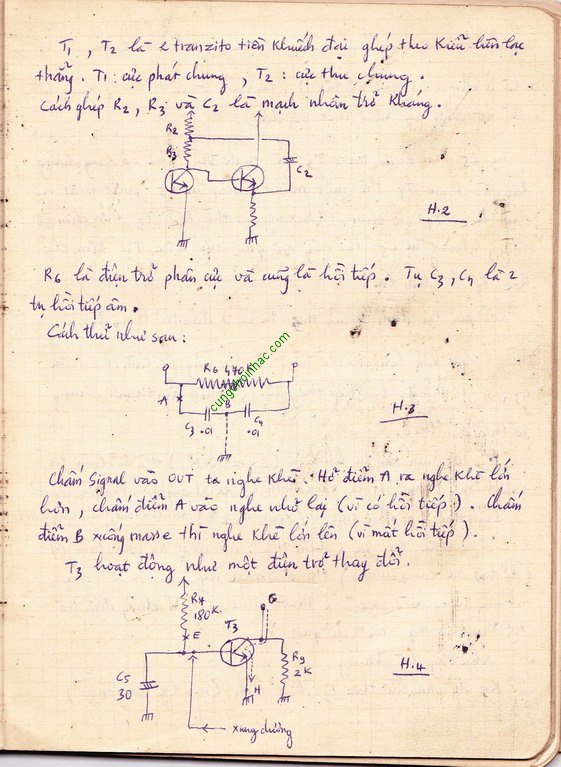 T1, T2 là 2 tranzito tiền khuếch đại ghép theo kiểu liên lạc
thẳng. T1: cực phát chung, T2: cực thu chung.
Cách ghép R2, R3 và C2 là mạch nhân trở kháng.
R2
R3
C2
H.2
R6 là điện trở phân cực và cũng là hồi tiếp. Tụ C3, C4 là 2
tụ hồi tiếp âm.
Cách thử như sau:
Q R6 470K P
A
B
C3 .01 C4 .01
cungchoinhac.com
H.3
Chấm Signal vào OUT ta nghe khẽ. Hở điểm A ra nghe khẽ lớn
hơn, chấm điểm A vào nghe nhỏ lại (vì có hồi tiếp). Chấm
điểm B xuống masse thì nghe khẽ lớn lên (vì mất hồi tiếp).
T3 hoạt động như một điện trở thay đổi.
R4
180K
G
E
T3
C5
30
H
R9
2K
H.4
xung dương